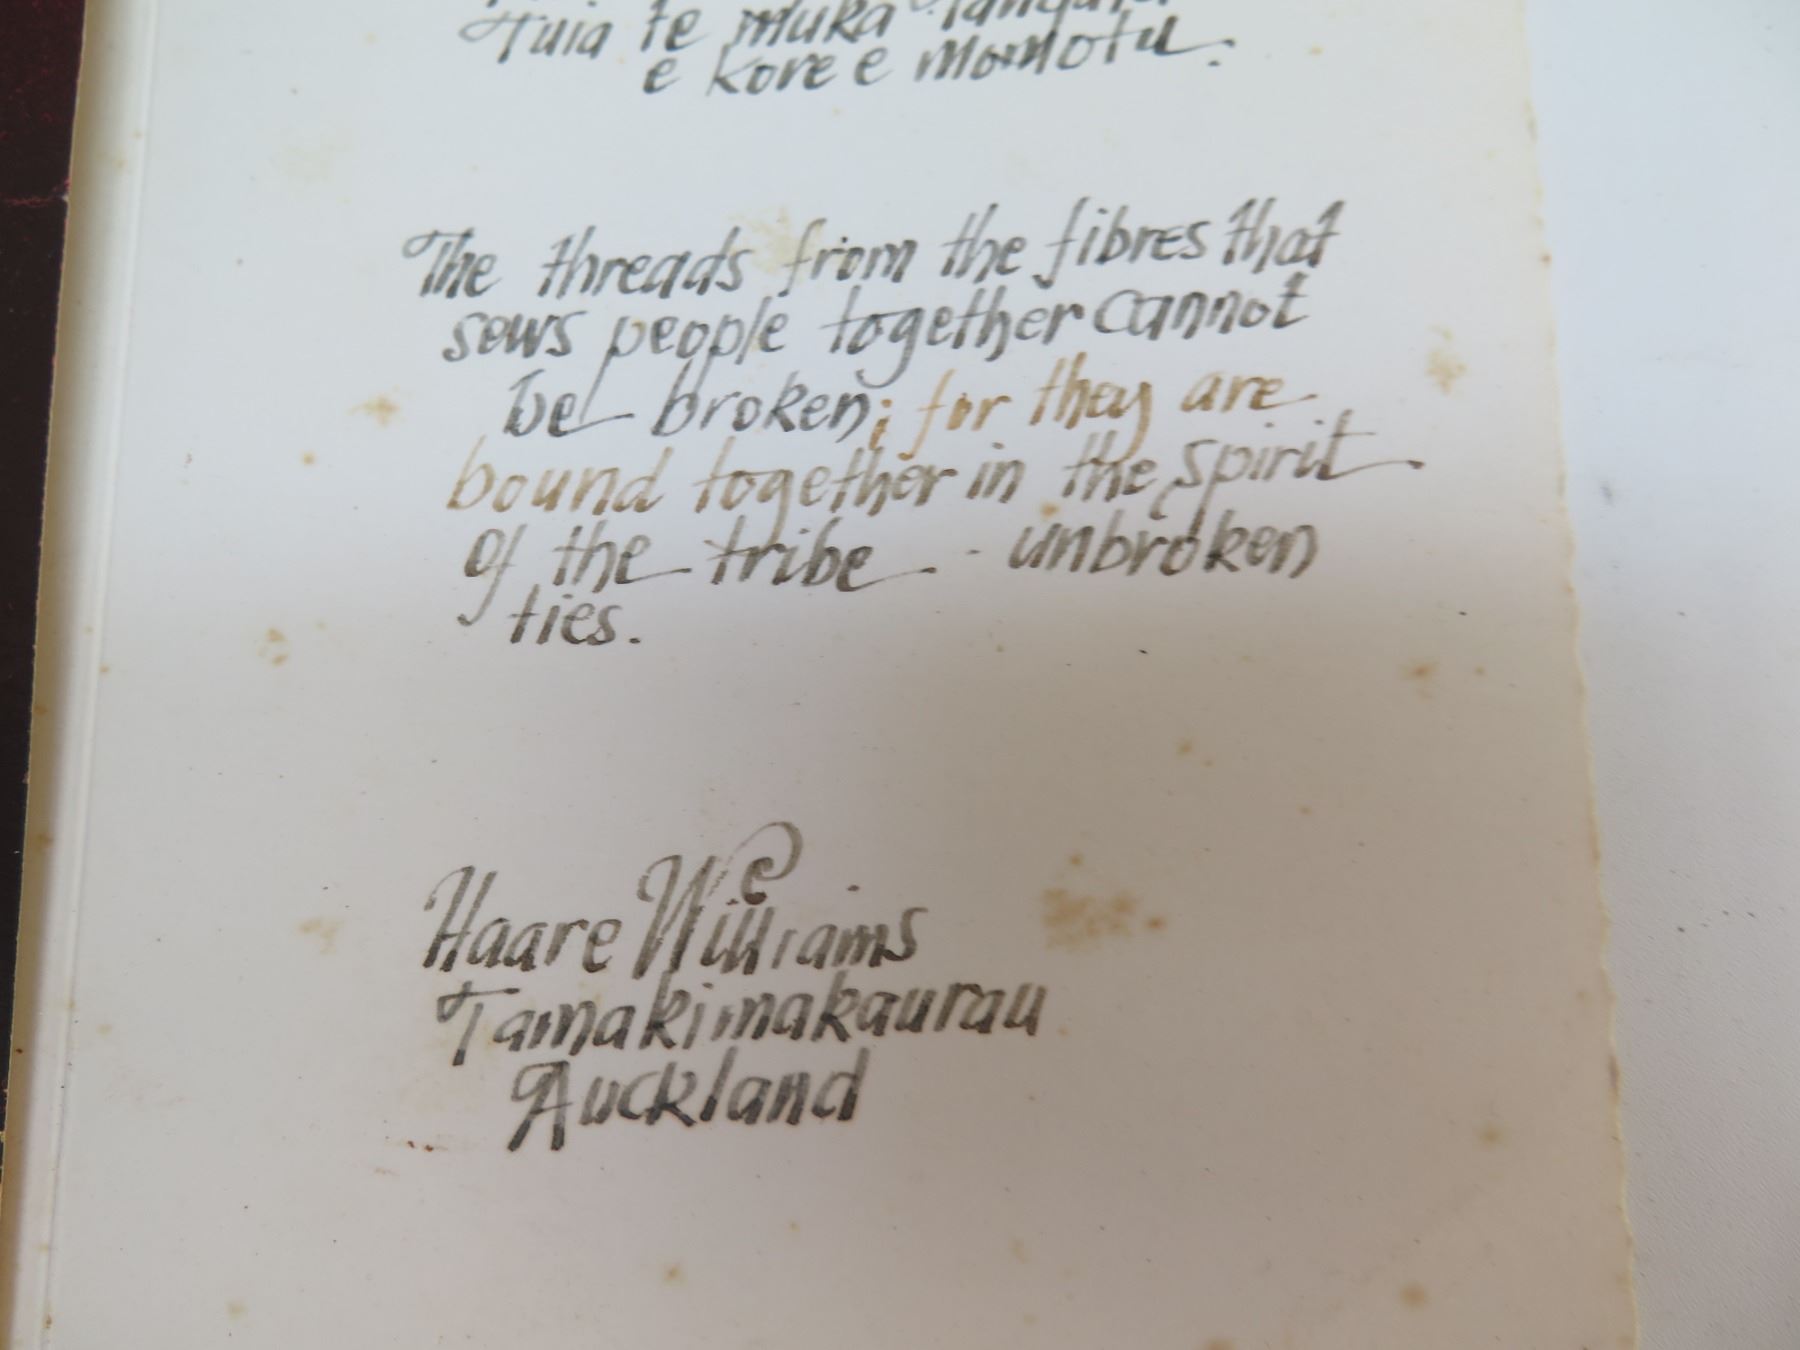 Tuia te muka Tangata
e kore e momotu.
The threads from the fibres that
sews people together cannot
be broken; for they are
bound together in the spirit
of the tribe - unbroken
ties.
Haare Williams
Tamakimakaurau
Auckland